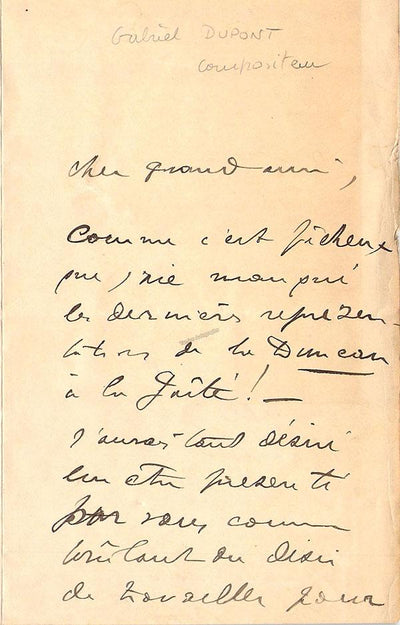 Gabriel DUPONT
compositeur
cher grand ami,
Comme c'est fâcheux
que j'aie manqué
les dernières représen-
tations de la Duncan
à la Gaîté ! —
J'aurais tant désiré
lui être présenté
par vous comme
brûlant du désir
de travailler pour